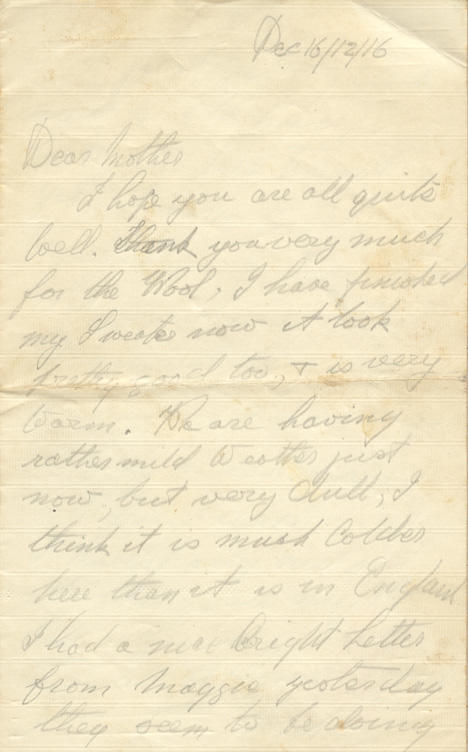 Dec 16/12/16
Dear Mother
I hope you are all quite
well. Thank you very much
for the Wool, I have finished
my Sweater now it look
pretty good too, & is very
warm. We are having
rather mild weather just
now, but very dull, I
think it is much Colder
here than it is in England
I had a nice bright Letter
from Maggie yesterday
they seem to be doing